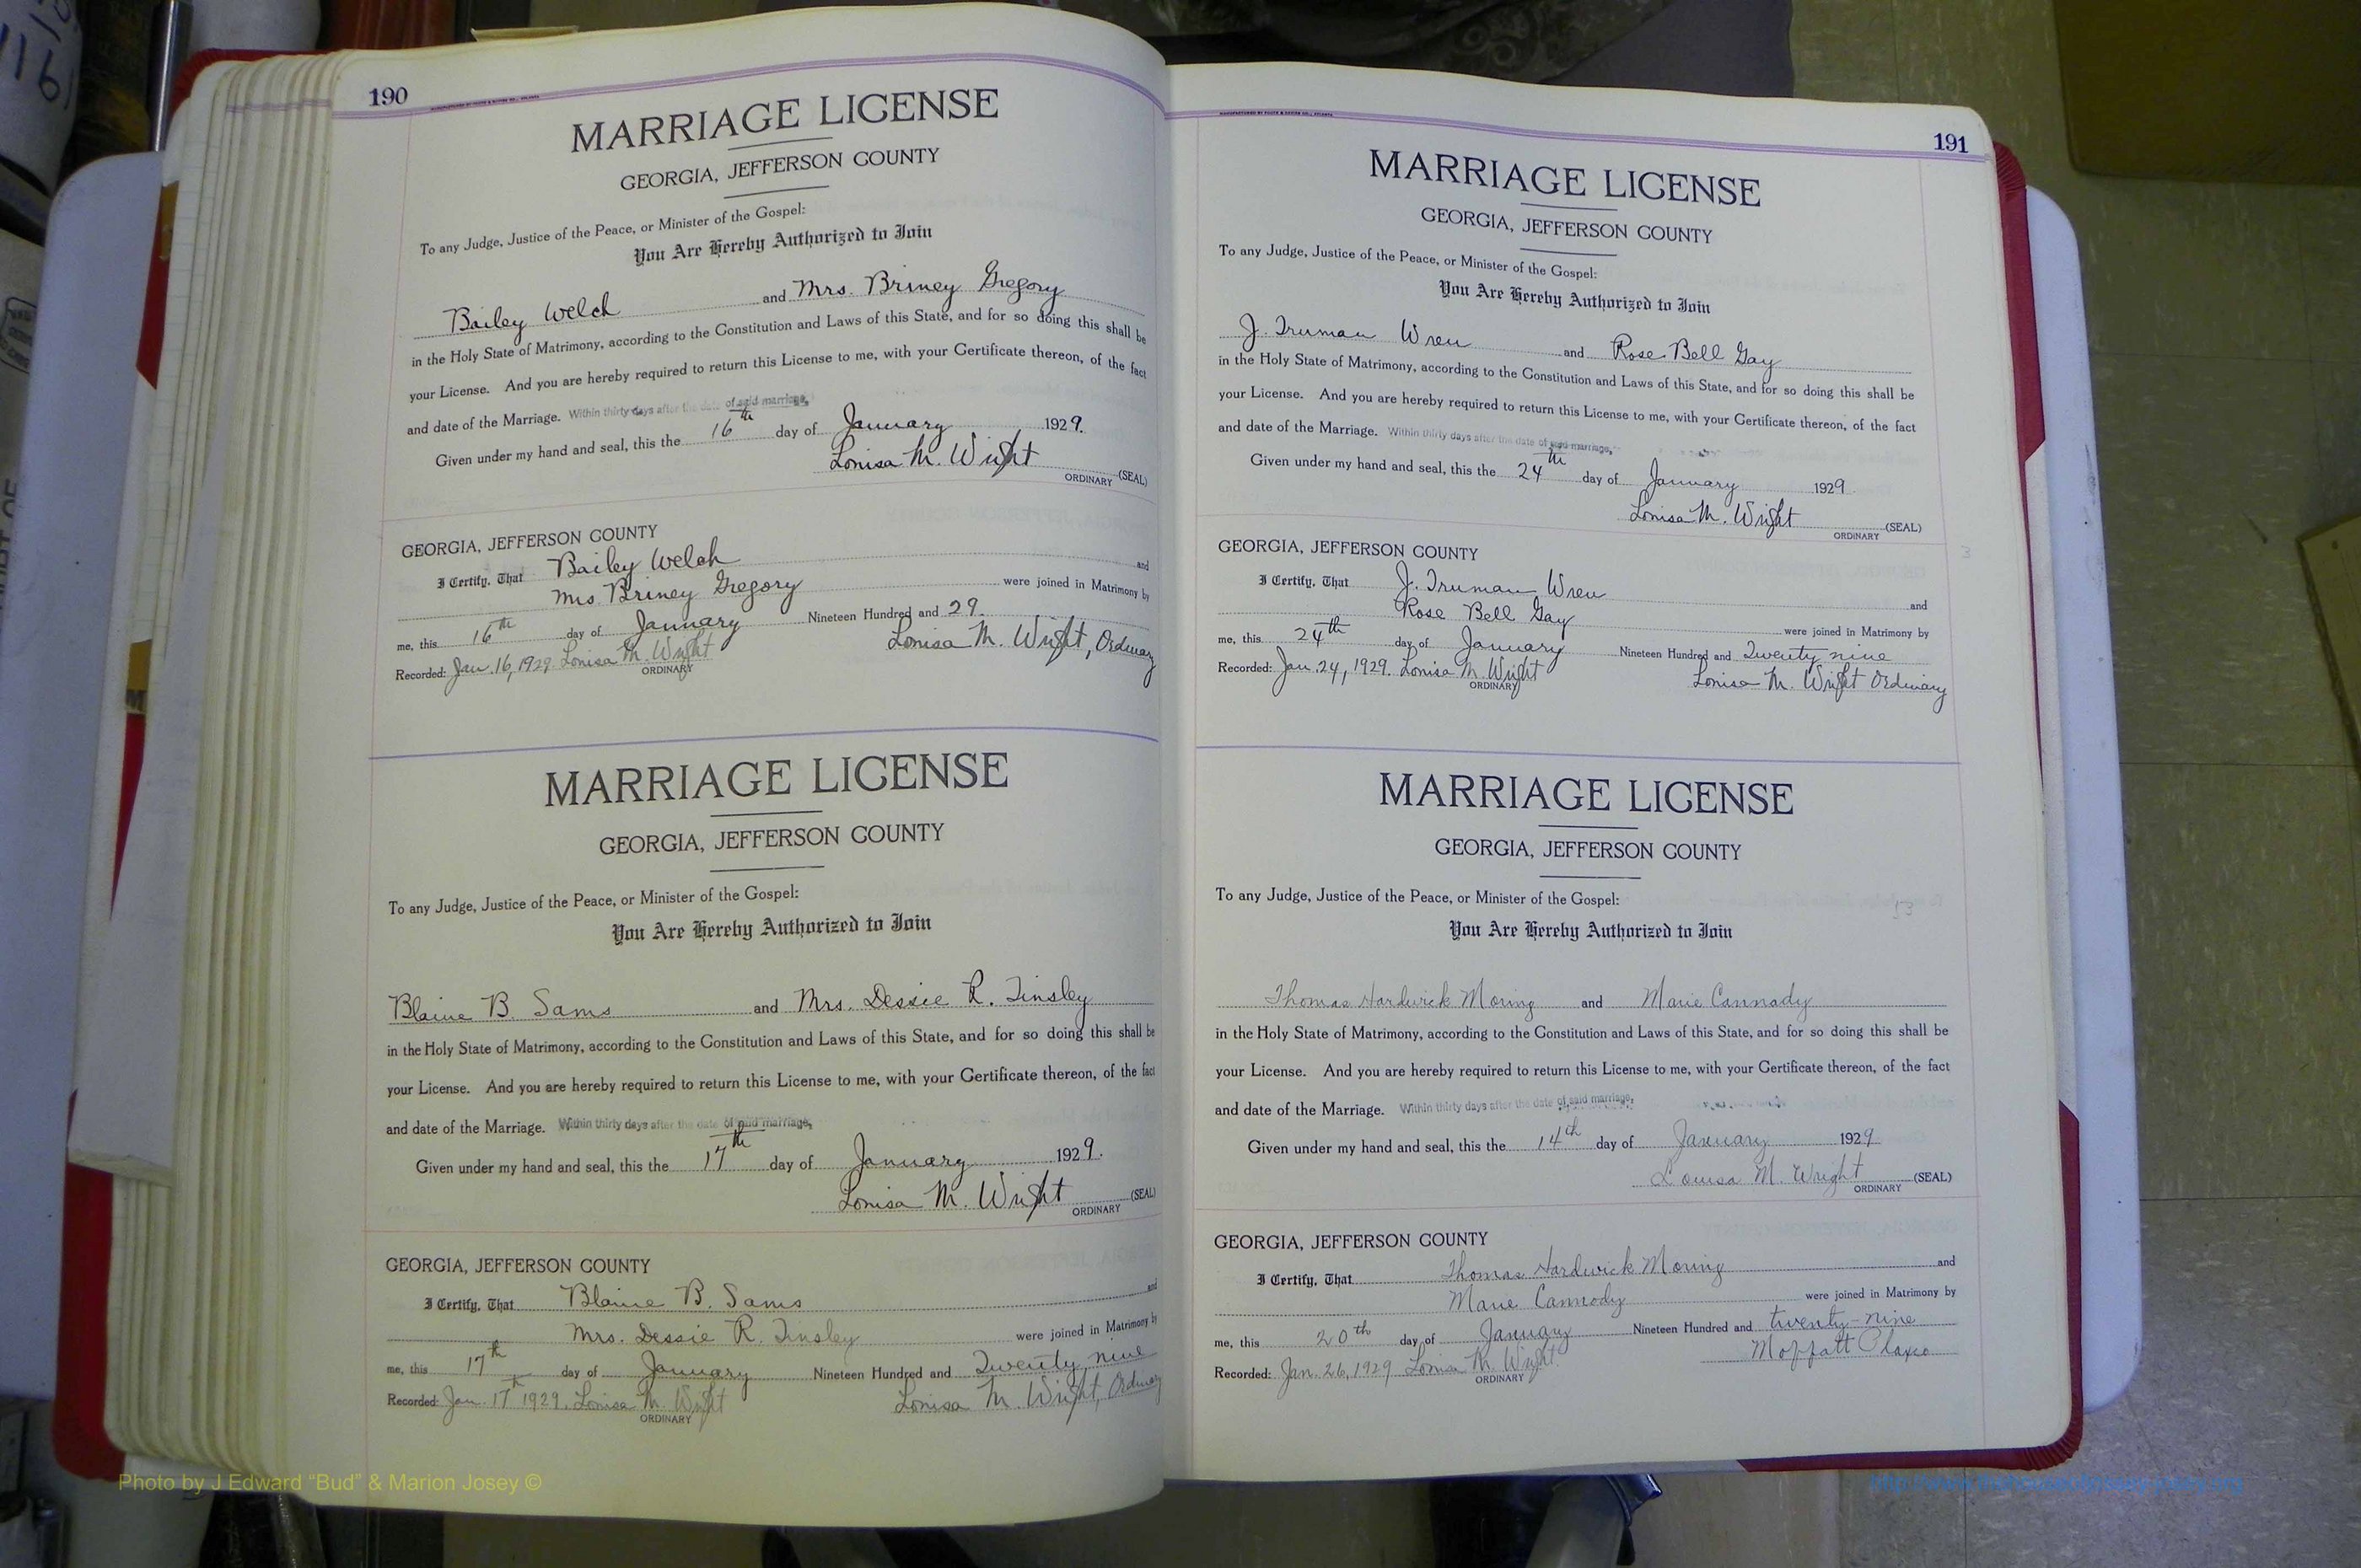 190
MARRIAGE LICENSE
GEORGIA, JEFFERSON COUNTY
To any Judge, Justice of the Peace, or Minister of the Gospel:
You Are Hereby Authorized to Join
Bailey Welch and Mrs. Briney Gregory
in the Holy State of Matrimony, according to the Constitution and Laws of this State, and for so doing this shall be
your License. And you are hereby required to return this License to me, with your Certificate thereon, of the fact
and date of the Marriage. Within thirty days after the date of said marriage,
Given under my hand and seal, this the 16th day of January 1929.
Louisa M. Wright (SEAL)
ORDINARY
GEORGIA, JEFFERSON COUNTY
I Certify, That Bailey Welch and
Mrs Briney Gregory were joined in Matrimony by
me, this 16th day of January Nineteen Hundred and 29.
Recorded: Jan. 16, 1929. Louisa M. Wright Louisa M. Wright, Ordinary
ORDINARY
MARRIAGE LICENSE
GEORGIA, JEFFERSON COUNTY
To any Judge, Justice of the Peace, or Minister of the Gospel:
You Are Hereby Authorized to Join
Blaine B. Sams and Mrs. Dessie R. Tinsley
in the Holy State of Matrimony, according to the Constitution and Laws of this State, and for so doing this shall be
your License. And you are hereby required to return this License to me, with your Certificate thereon, of the fact
and date of the Marriage. Within thirty days after the date of said marriage,
Given under my hand and seal, this the 17th day of January 1929.
Louisa M. Wright (SEAL)
ORDINARY
GEORGIA, JEFFERSON COUNTY
I Certify, That Blaine B. Sams and
Mrs. Dessie R. Tinsley were joined in Matrimony by
me, this 17th day of January Nineteen Hundred and Twenty nine
Recorded: Jan. 17th 1929. Louisa M. Wright Louisa M. Wright, Ordinary
ORDINARY
191
MARRIAGE LICENSE
GEORGIA, JEFFERSON COUNTY
To any Judge, Justice of the Peace, or Minister of the Gospel:
You Are Hereby Authorized to Join
J. Truman Wren and Rose Bell Gay
in the Holy State of Matrimony, according to the Constitution and Laws of this State, and for so doing this shall be
your License. And you are hereby required to return this License to me, with your Certificate thereon, of the fact
and date of the Marriage. Within thirty days after the date of said marriage,
Given under my hand and seal, this the 24th day of January 1929.
Louisa M. Wright (SEAL)
ORDINARY
GEORGIA, JEFFERSON COUNTY
I Certify, That J. Truman Wren and
Rose Bell Gay were joined in Matrimony by
me, this 24th day of January Nineteen Hundred and Twenty nine
Recorded: Jan. 24, 1929. Louisa M. Wright Louisa M. Wright Ordinary
ORDINARY
MARRIAGE LICENSE
GEORGIA, JEFFERSON COUNTY
To any Judge, Justice of the Peace, or Minister of the Gospel:
You Are Hereby Authorized to Join
Thomas Hardwick Moring and Marie Cannady
in the Holy State of Matrimony, according to the Constitution and Laws of this State, and for so doing this shall be
your License. And you are hereby required to return this License to me, with your Certificate thereon, of the fact
and date of the Marriage. Within thirty days after the date of said marriage,
Given under my hand and seal, this the 14th day of January 1929
Louisa M. Wright (SEAL)
ORDINARY
GEORGIA, JEFFERSON COUNTY
I Certify, That Thomas Hardwick Moring and
Marie Cannady were joined in Matrimony by
me, this 20th day of January Nineteen Hundred and twenty-nine
Moffatt Plaxco
Recorded: Jan. 26, 1929 Louisa M. Wright
ORDINARY
Photo by J Edward “Bud” & Marion Josey ©